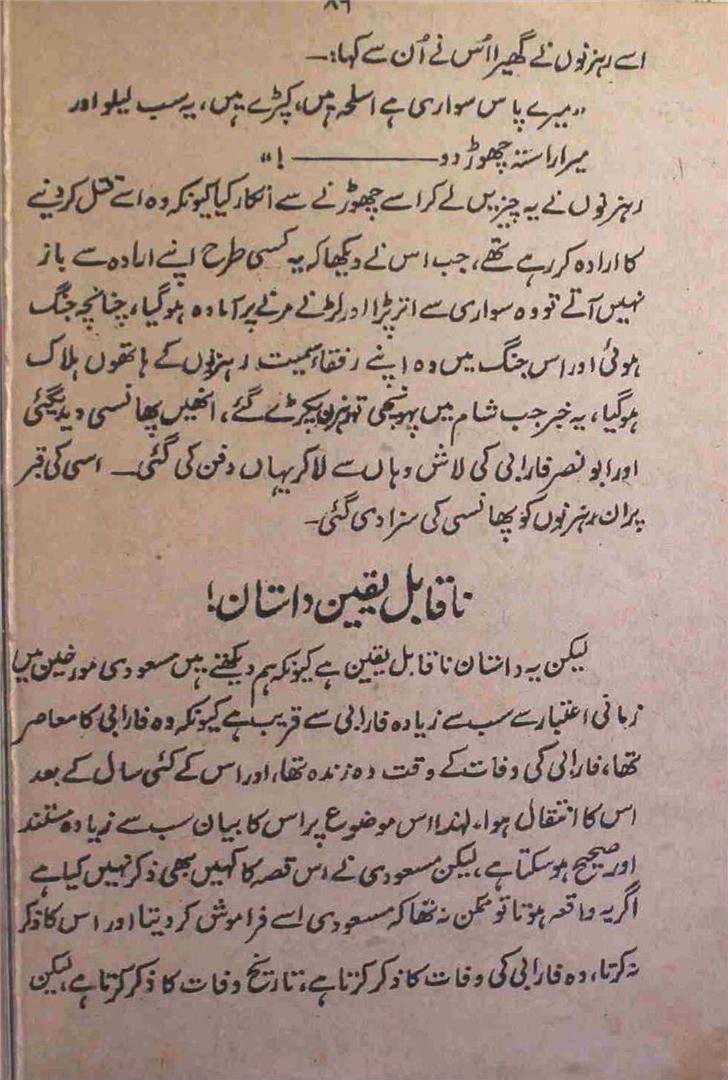 ۸۶
اسے رہزنوں نے گھیرا اُس نے اُن سے کہا:۔
"میرے پاس سواری ہے اسلحہ ہیں، کپڑے ہیں، یہ سب لیلو اور
میرا راستہ چھوڑ دو ——— !"
رہزنوں نے یہ چیزیں لے کر اسے چھوڑنے سے انکار کیا کیونکہ وہ اسے قتل کر دینے
کا ارادہ کر رہے تھے، جب اس نے دیکھا کہ یہ کسی طرح اپنے ارادہ سے باز
نہیں آتے تو وہ سواری سے اتر پڑا اور لڑنے مرنے پر آمادہ ہو گیا، چنانچہ جنگ
ہوئی اور اس جنگ میں وہ اپنے رفقاء سمیت رہزنوں کے ہاتھوں ہلاک
ہو گیا، یہ خبر جب شام میں پہونچی تو رہزن پکڑے گئے، انھیں پھانسی دیدیگئی
اور ابو نصر فارابی کی لاش وہاں سے لا کر یہاں دفن کی گئی۔ اسی کی قبر
پر ان رہزنوں کو پھانسی کی سزا دی گئی۔
ناقابل یقین داستان!
لیکن یہ داستان ناقابل یقین ہے کیونکہ ہم دیکھتے ہیں مسعودی مورخین میں
زمانی اعتبار سے سب سے زیادہ فارابی سے قریب ہے کیونکہ وہ فارابی کا معاصر
تھا، فارابی کی وفات کے وقت وہ زندہ تھا، اور اس کے کئی سال کے بعد
اس کا انتقال ہوا۔ لہذا اس موضوع پر اس کا بیان سب سے زیادہ مستند
اور صحیح ہو سکتا ہے، لیکن مسعودی نے اس قصہ کا کہیں بھی ذکر نہیں کیا ہے
اگر یہ واقعہ ہوتا تو ممکن نہ تھا کہ مسعودی اسے فراموش کر دیتا اور اس کا ذکر
نہ کرتا، وہ فارابی کی وفات کا ذکر کرتا ہے، تاریخ وفات کا ذکر کرتا ہے، لیکن